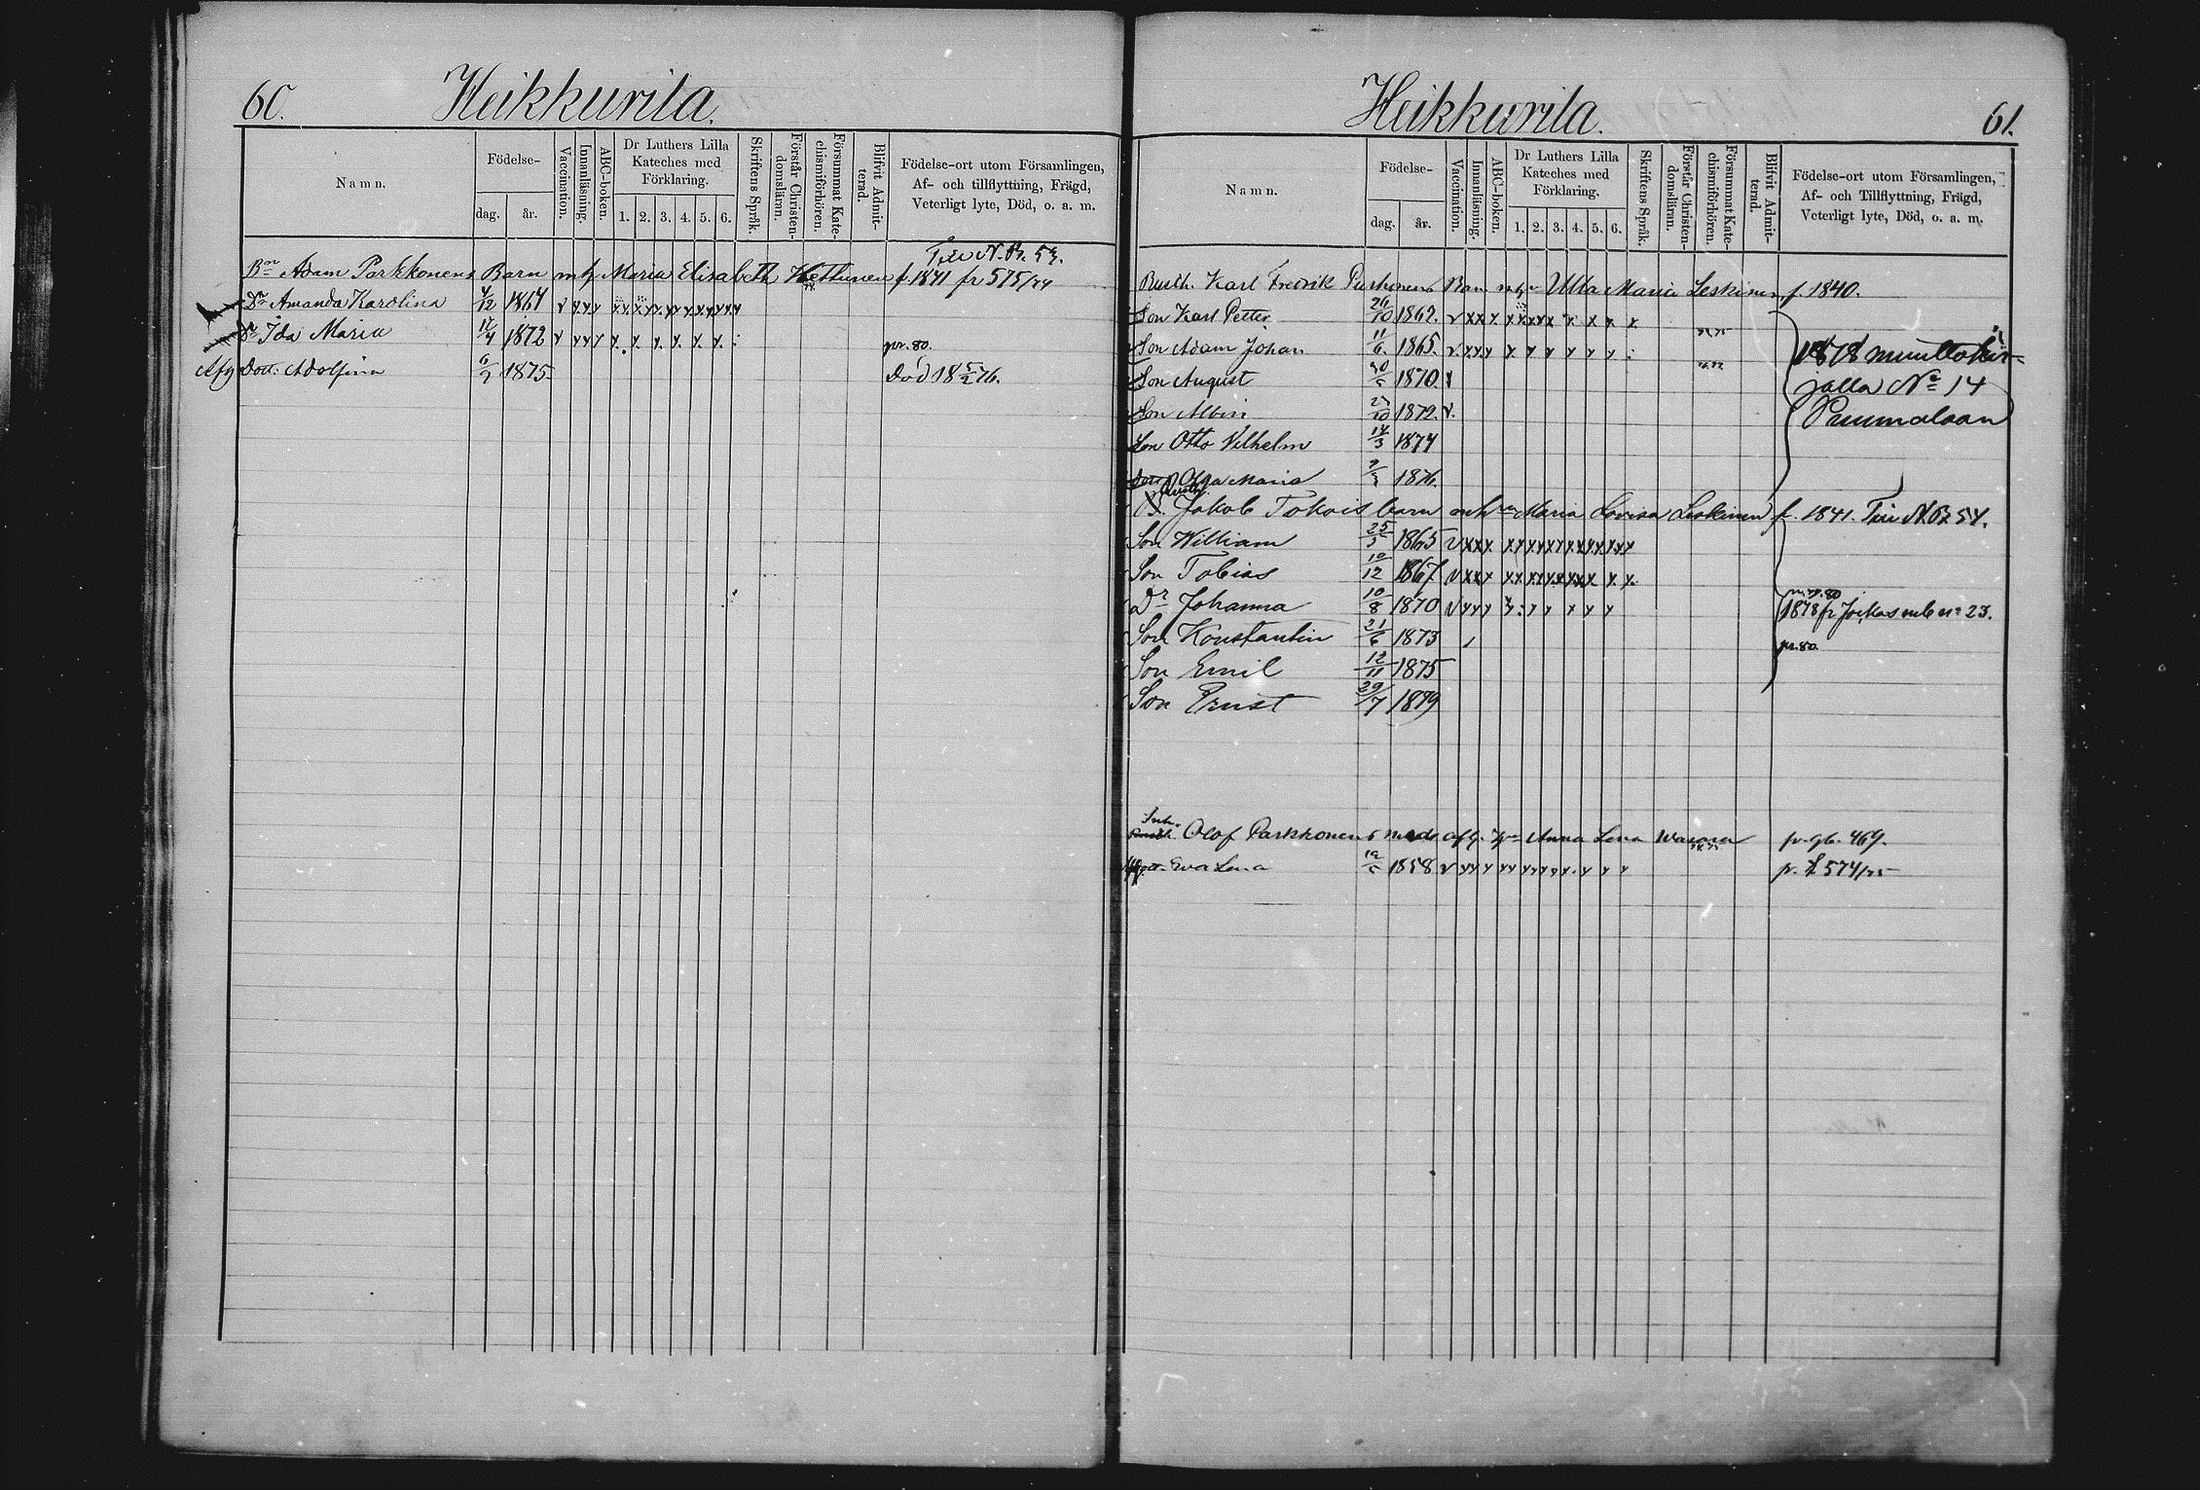 60.
Heikkurila.
Namn.
Födelse-
dag.
år.
Vaccination.
Innanläsning.
ABC-boken.
Dr Luthers Lilla
Kateches med
Förklaring.
1. 2. 3. 4. 5. 6.
Skriftens Språk.
Förstår Christen-
domsläran.
Försummat Kate-
chismiförhören.
Blifvit Admit-
terad.
Födelse-ort utom Församlingen,
Af- och tillflyttning, Frägd,
Veterligt lyte, Död, o. a. m.
N. B. 54.
Bn Adam Parkkonens Barn m h Maria Elisabeth f. 1841 fr 575/74
Dr Amanda Karolina 4/12 1864 v x x x x x x x x x x x x
Dr Ida Maria 17/4 1872 v x x x x. x. x. x. x. x.
pr. 80.
Afg Dott. Adolfina 6/7 1875 Död 18 5/2 76.
Heikkurila.
61.
Namn.
Födelse-
dag.
år.
Vaccination.
Innanläsning.
ABC-boken.
Dr Luthers Lilla
Kateches med
Förklaring.
1. 2. 3. 4. 5. 6.
Skriftens Språk.
Förstår Christen-
domsläran.
Försummat Kate-
chismiförhören.
Blifvit Admit-
terad.
Födelse-ort utom Församlingen,
Af- och Tillflyttning, Frägd,
Veterligt lyte, Död, o. a. m.
Rusth. Karl Fredrik Barn Ulla Maria Leskinen f. 1840.
Son Karl Petter 26/10 1862. v x x x x x x x x x x x x
Son Adam Johan 11/6 1865. v x x x x x x x x x
1878 muuttokir-
jalla No 14
Son August 1870 v
Son Albin 27/10 1872. v.
Son Otto Vilhelm 14/3 1874
Olga Maria 1876.
Rusth.
Jakob Tokois barn m h Maria Lovisa Leskinen f. 1841. N. B. 54.
Son William 25/3 1865 v x x x x x x x x x x x x x x x
Son Tobias 10/12 1867 v x x x x x x x x x x x x
Dr Johanna 10/8 1870 v x x x x x x x x x 1878 fr no 23.
Son Konstantin 21/6 1873
pr. 80.
Son Emil 12/11 1875
Son Ernst 29/7 1879
Olof Parkkonens med afl. Anna Lena p. gb. 469.
Eva Lena 1858 v x x x x x x x x x x x x x p. 574/75